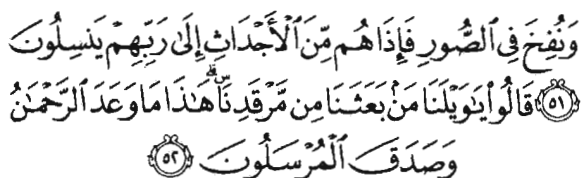 وَنُفِخَ فِي ٱلصُّورِ فَإِذَا هُم مِّنَ ٱلْأَجْدَاثِ إِلَىٰ رَبِّهِمْ يَنسِلُونَ
﴿٥١﴾ قَالُوا۟ يَٰوَيْلَنَا مَنۢ بَعَثَنَا مِن مَّرْقَدِنَا ۜ ۗ هَٰذَا مَا وَعَدَ ٱلرَّحْمَٰنُ
وَصَدَقَ ٱلْمُرْسَلُونَ ﴿٥٢﴾